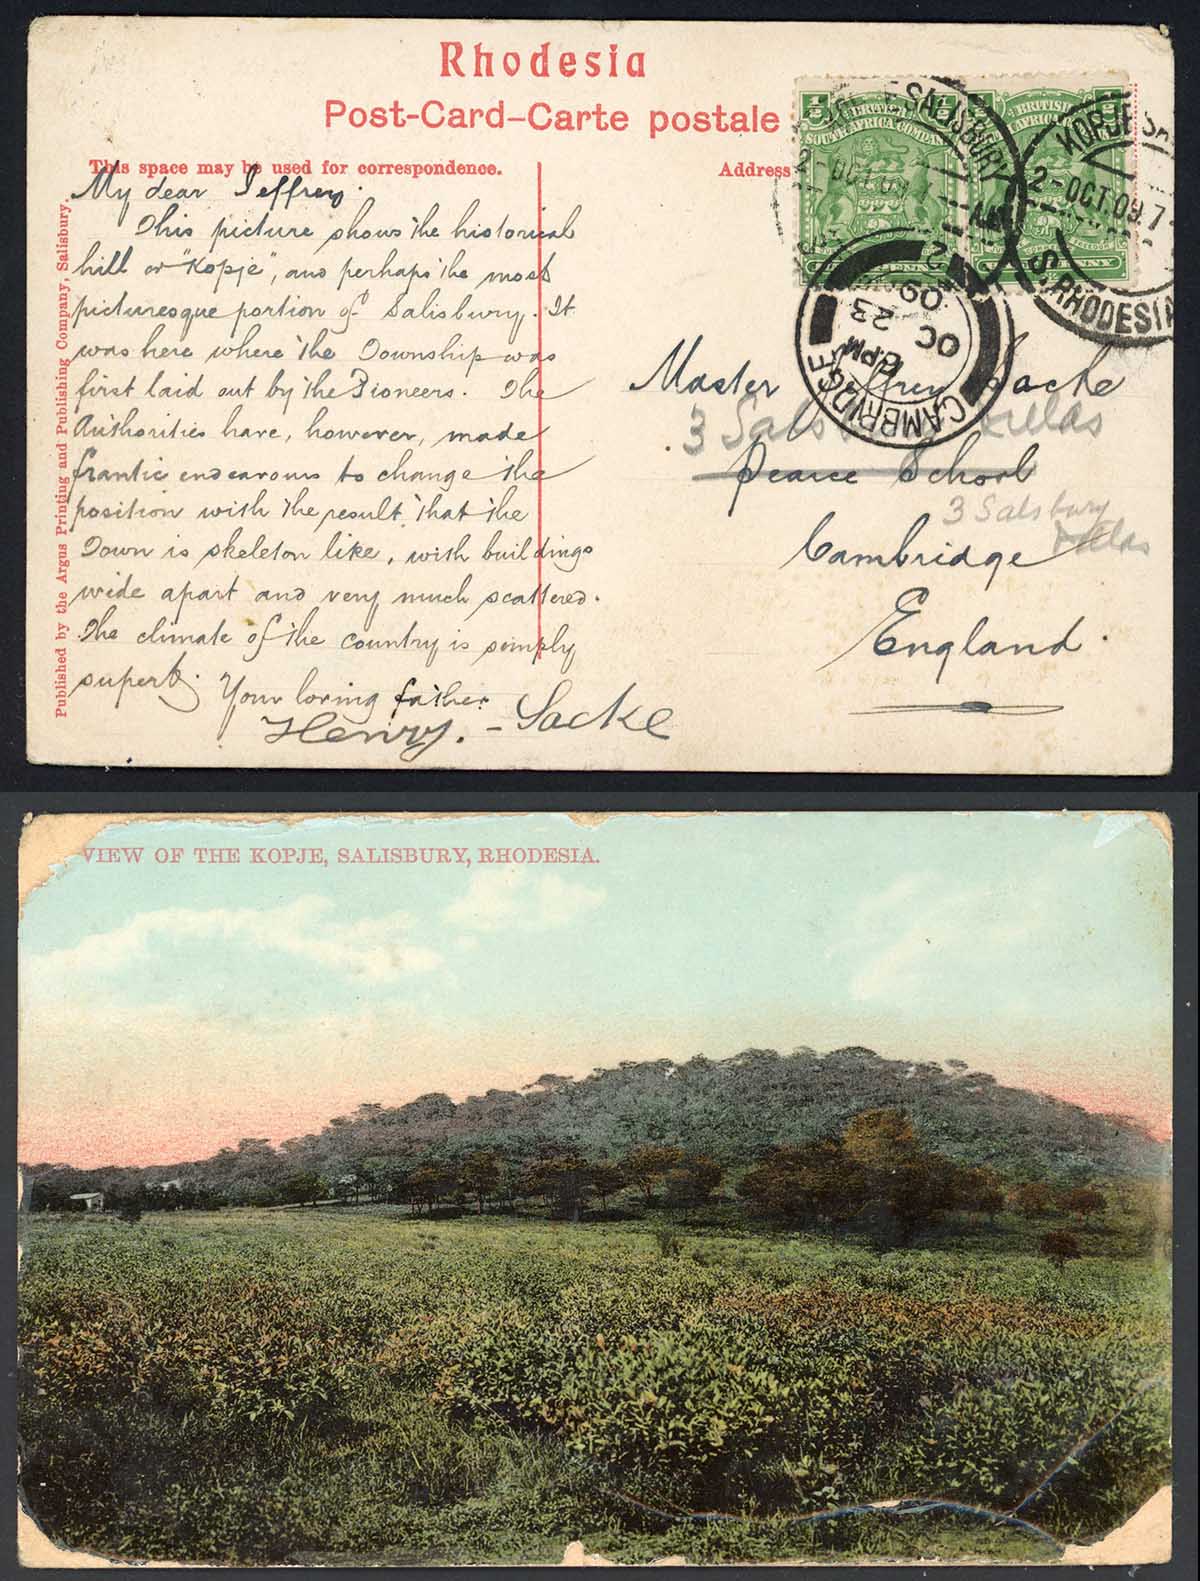 Rhodesia
Post-Card–Carte postale
This space may be used for correspondence.
Address
Published by the Argus Printing and Publishing Company, Salisbury.
My dear Jeffrey.
This picture shows the historical
hill or "Kopje", and perhaps the most
picturesque portion of Salisbury. It
was here where the Township was
first laid out by the Pioneers. The
Authorities have, however, made
frantic endeavours to change the
position with the result that the
Town is skeleton like, with buildings
wide apart and very much scattered.
The climate of the country is simply
superb. Your loving father
Henry. - Sacke
½ BRITISH ½
SOUTH AFRICA COMPANY
½ BRITISH ½
AFRICA COMPANY
SALISBURY
2-OCT.09
KOPJE SA
2-OCT.09.7
S.RHODESIA
CAMBRIDGE
6PM
OC 23
09
Master Jeffrey Sacke
3 Salisbury Villas
Pearce School
3 Salsbury
Villas
Cambridge
England.
VIEW OF THE KOPJE, SALISBURY, RHODESIA.